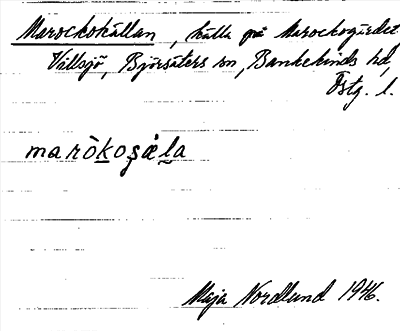 Marockokällan, källa på Marockogärdet
Villsjö, Björsäters sn, Bankekinds hd,
Östg. l.
maròkoȿä́la
Maja Nordlund 1946.